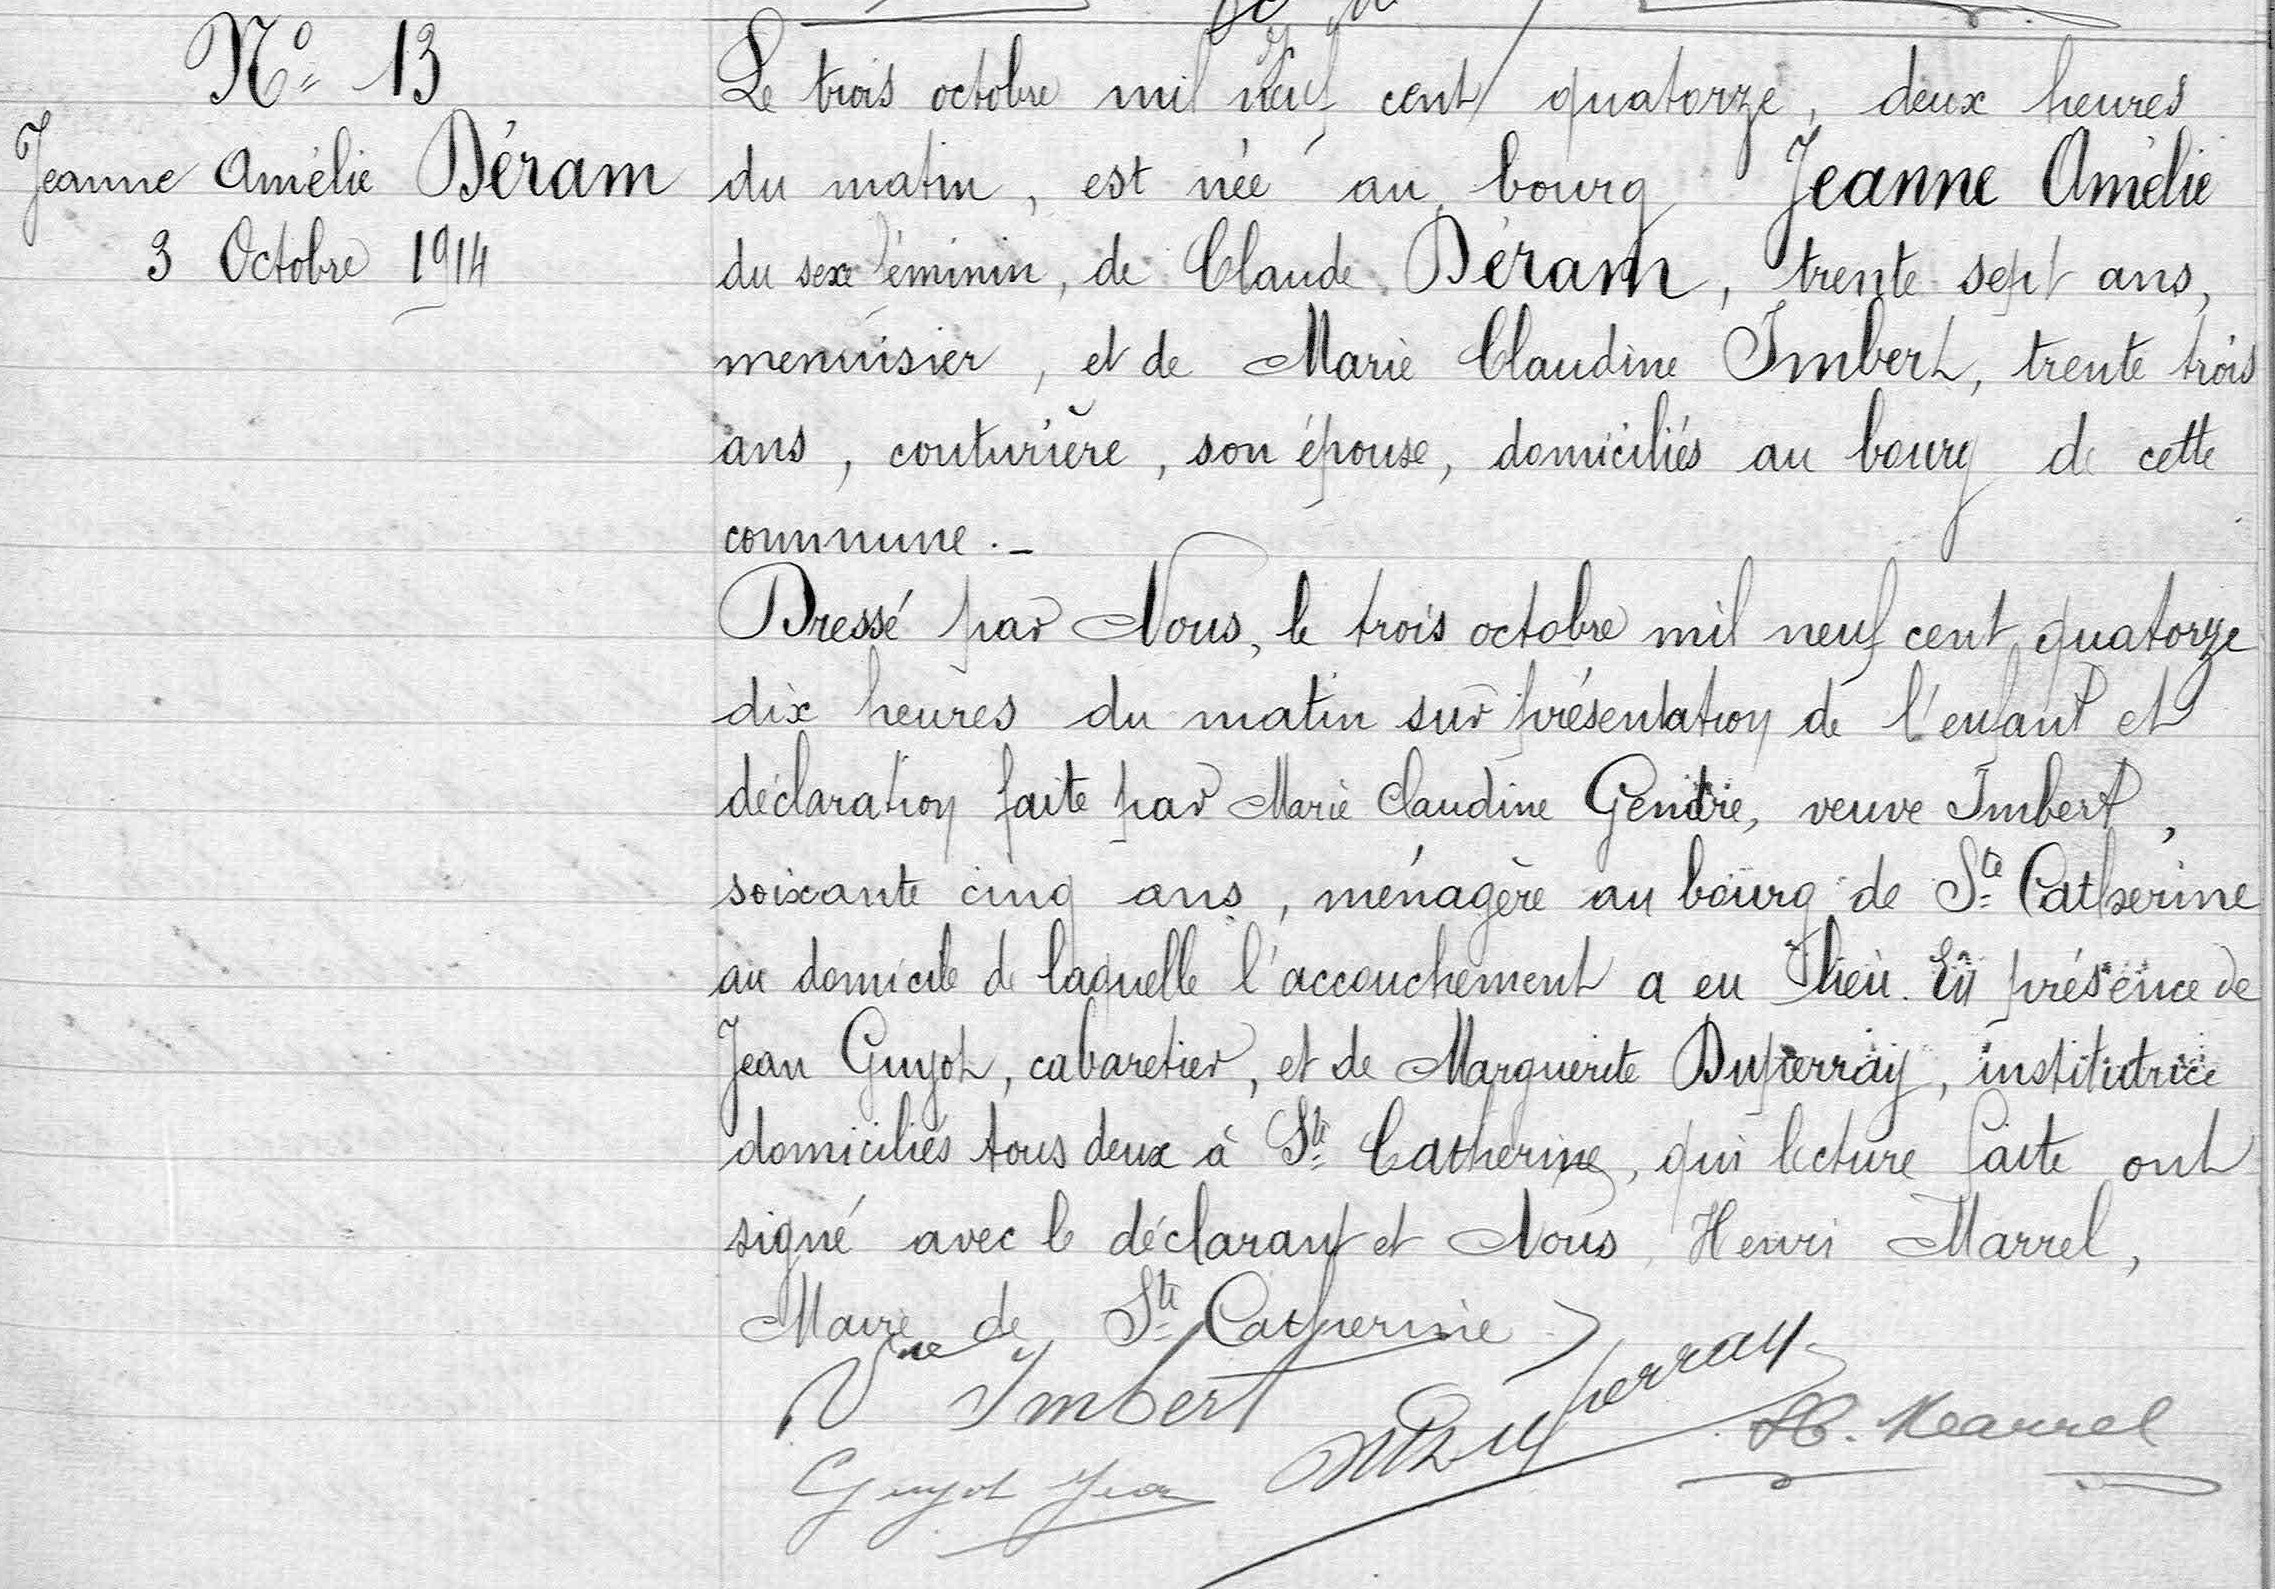 N° 13
Jeanne Amélie Déram
3 Octobre 1914
Le trois octobre mil neuf cent quatorze, deux heures
du matin, est née au bourg Jeanne Amélie
du sexe féminin, de Claude Déram, trente sept ans,
menuisier, et de Marie Claudine Imbert, trente trois
ans, couturière, son épouse, domiciliés au bourg de cette
commune. _
Dressé par Nous, le trois octobre mil neuf cent quatorze
dix heures du matin sur présentation de l'enfant et
déclaration faite par Marie Claudine Gendre, veuve Imbert,
soixante cinq ans, ménagère au bourg de Ste Catherine
au domicile de laquelle l'accouchement a eu lieu. En présence de
Jean Guyot, cabaretier, et de Marguerite Duperray, institutrice
domiciliés tous deux à Ste Catherine, qui lecture faite ont
signé avec le déclarant et Nous, Henri Marrel,
Maire de Ste Catherine.
Vve Imbert
Duperray
H. Marrel
Guyot Jean